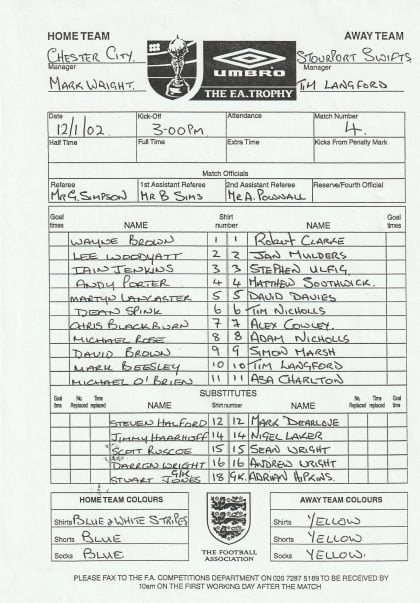 HOME TEAM AWAY TEAM
CHESTER CITY. STOURPORT SWIFTS
Manager Manager
MARK WRIGHT. UMBRO TIM LANGFORD
THE F.A. TROPHY
Date Kick-Off Attendance Match Number
12/1/02. 3-00PM. 4.
Half Time Full Time Extra Time Kicks From Penalty Mark
Match Officials
Referee 1st Assistant Referee 2nd Assistant Referee Reserve/Fourth Official
Mr G. SIMPSON Mr B SIMS Mr A. POWNALL
Goal times NAME Shirt number NAME Goal times
WAYNE BROWN 1 1 Robert CLARKE
LEE WOODYATT 2 2 JON MULDERS
IAIN JENKINS 3 3 STEPHEN ULFIG.
ANDY PORTER 4 4 MATTHEW SOUTHWICK.
MARTYN LANCASTER 5 5 DAVID DAVIES
DEAN SPINK 6 6 TIM NICHOLLS
CHRIS BLACKBURN 7 7 ALEX COWLEY.
MICHAEL ROSE 8 8 ADAM NICHOLLS
DAVID BROWN 9 9 SIMON MARSH
MARK BEESLEY 10 10 TIM LANGFORD
MICHAEL O'BRIEN 11 11 ASA CHARLTON
SUBSTITUTES
Goal time No. Replaced Time replaced NAME Shirt number NAME No. Replaced Time replaced Goal time
STEVEN HALFORD 12 12 MARK DEARLOVE
JIMMY HAARHOFF 14 14 NIGEL LAKER
SCOTT RUSCOE 15 15 SEAN WRIGHT
DARREN WRIGHT 16 16 ANDREW WRIGHT
STUART JONES G/K 18 GK. ADRIAN HOPKINS.
HOME TEAM COLOURS AWAY TEAM COLOURS
Shirts BLUE & WHITE STRIPES Shirts YELLOW
Shorts BLUE Shorts YELLOW
Socks BLUE Socks YELLOW.
THE FOOTBALL
ASSOCIATION
PLEASE FAX TO THE F.A. COMPETITIONS DEPARTMENT ON 020 7287 5189 TO BE RECEIVED BY
10am ON THE FIRST WORKING DAY AFTER THE MATCH